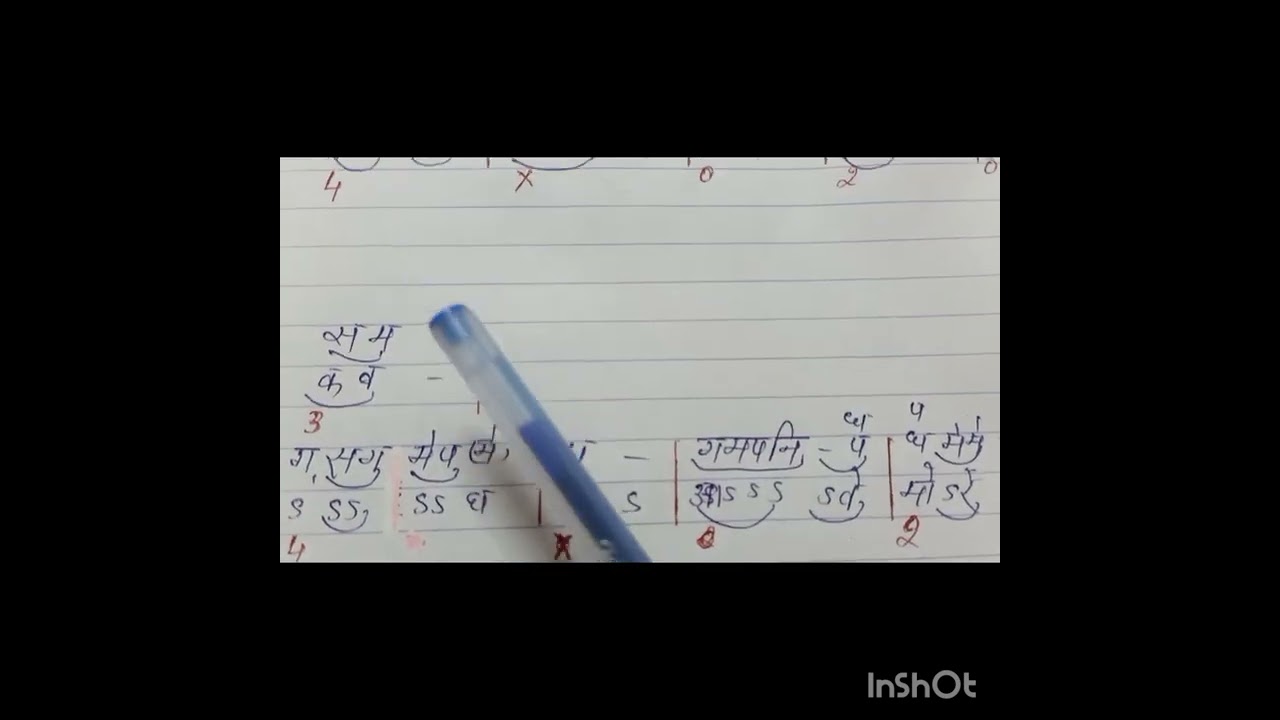 4 X 0 2 0
स म
क ब -
3
ग, सग मे प (मे), - | गमपनि - प | ध मे मे
ध प
S SS, SS घ | S | आ S S S S वे | मो S रे
4 X 0 2
InShOt